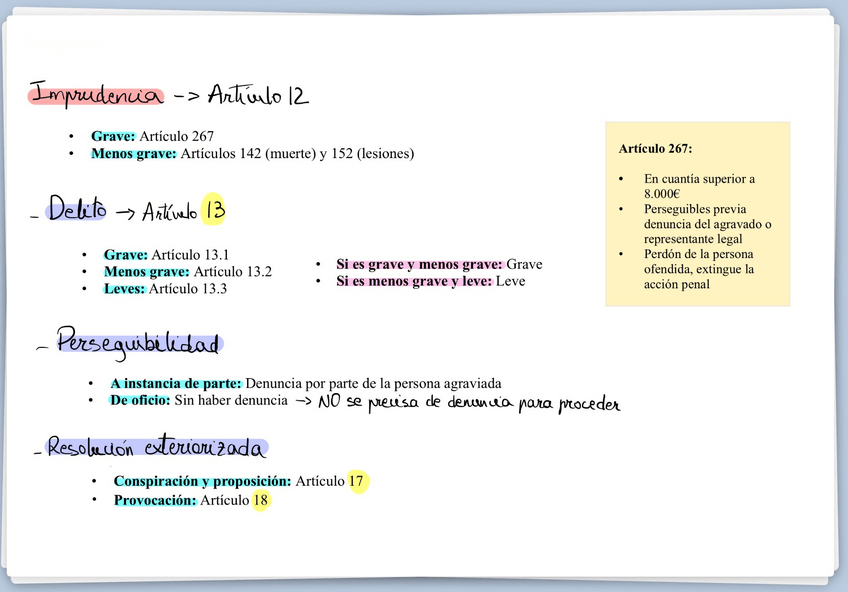 Imprudencia -> Artículo 12
• Grave: Artículo 267
• Menos grave: Artículos 142 (muerte) y 152 (lesiones)
Artículo 267:
• En cuantía superior a
8.000€
• Perseguibles previa
denuncia del agravado o
representante legal
• Perdón de la persona
ofendida, extingue la
acción penal
- Delito -> Artículo 13
• Grave: Artículo 13.1
• Menos grave: Artículo 13.2
• Leves: Artículo 13.3
• Si es grave y menos grave: Grave
• Si es menos grave y leve: Leve
- Perseguibilidad
• A instancia de parte: Denuncia por parte de la persona agraviada
• De oficio: Sin haber denuncia -> NO se precisa de denuncia para proceder
- Resolución exteriorizada
• Conspiración y proposición: Artículo 17
• Provocación: Artículo 18